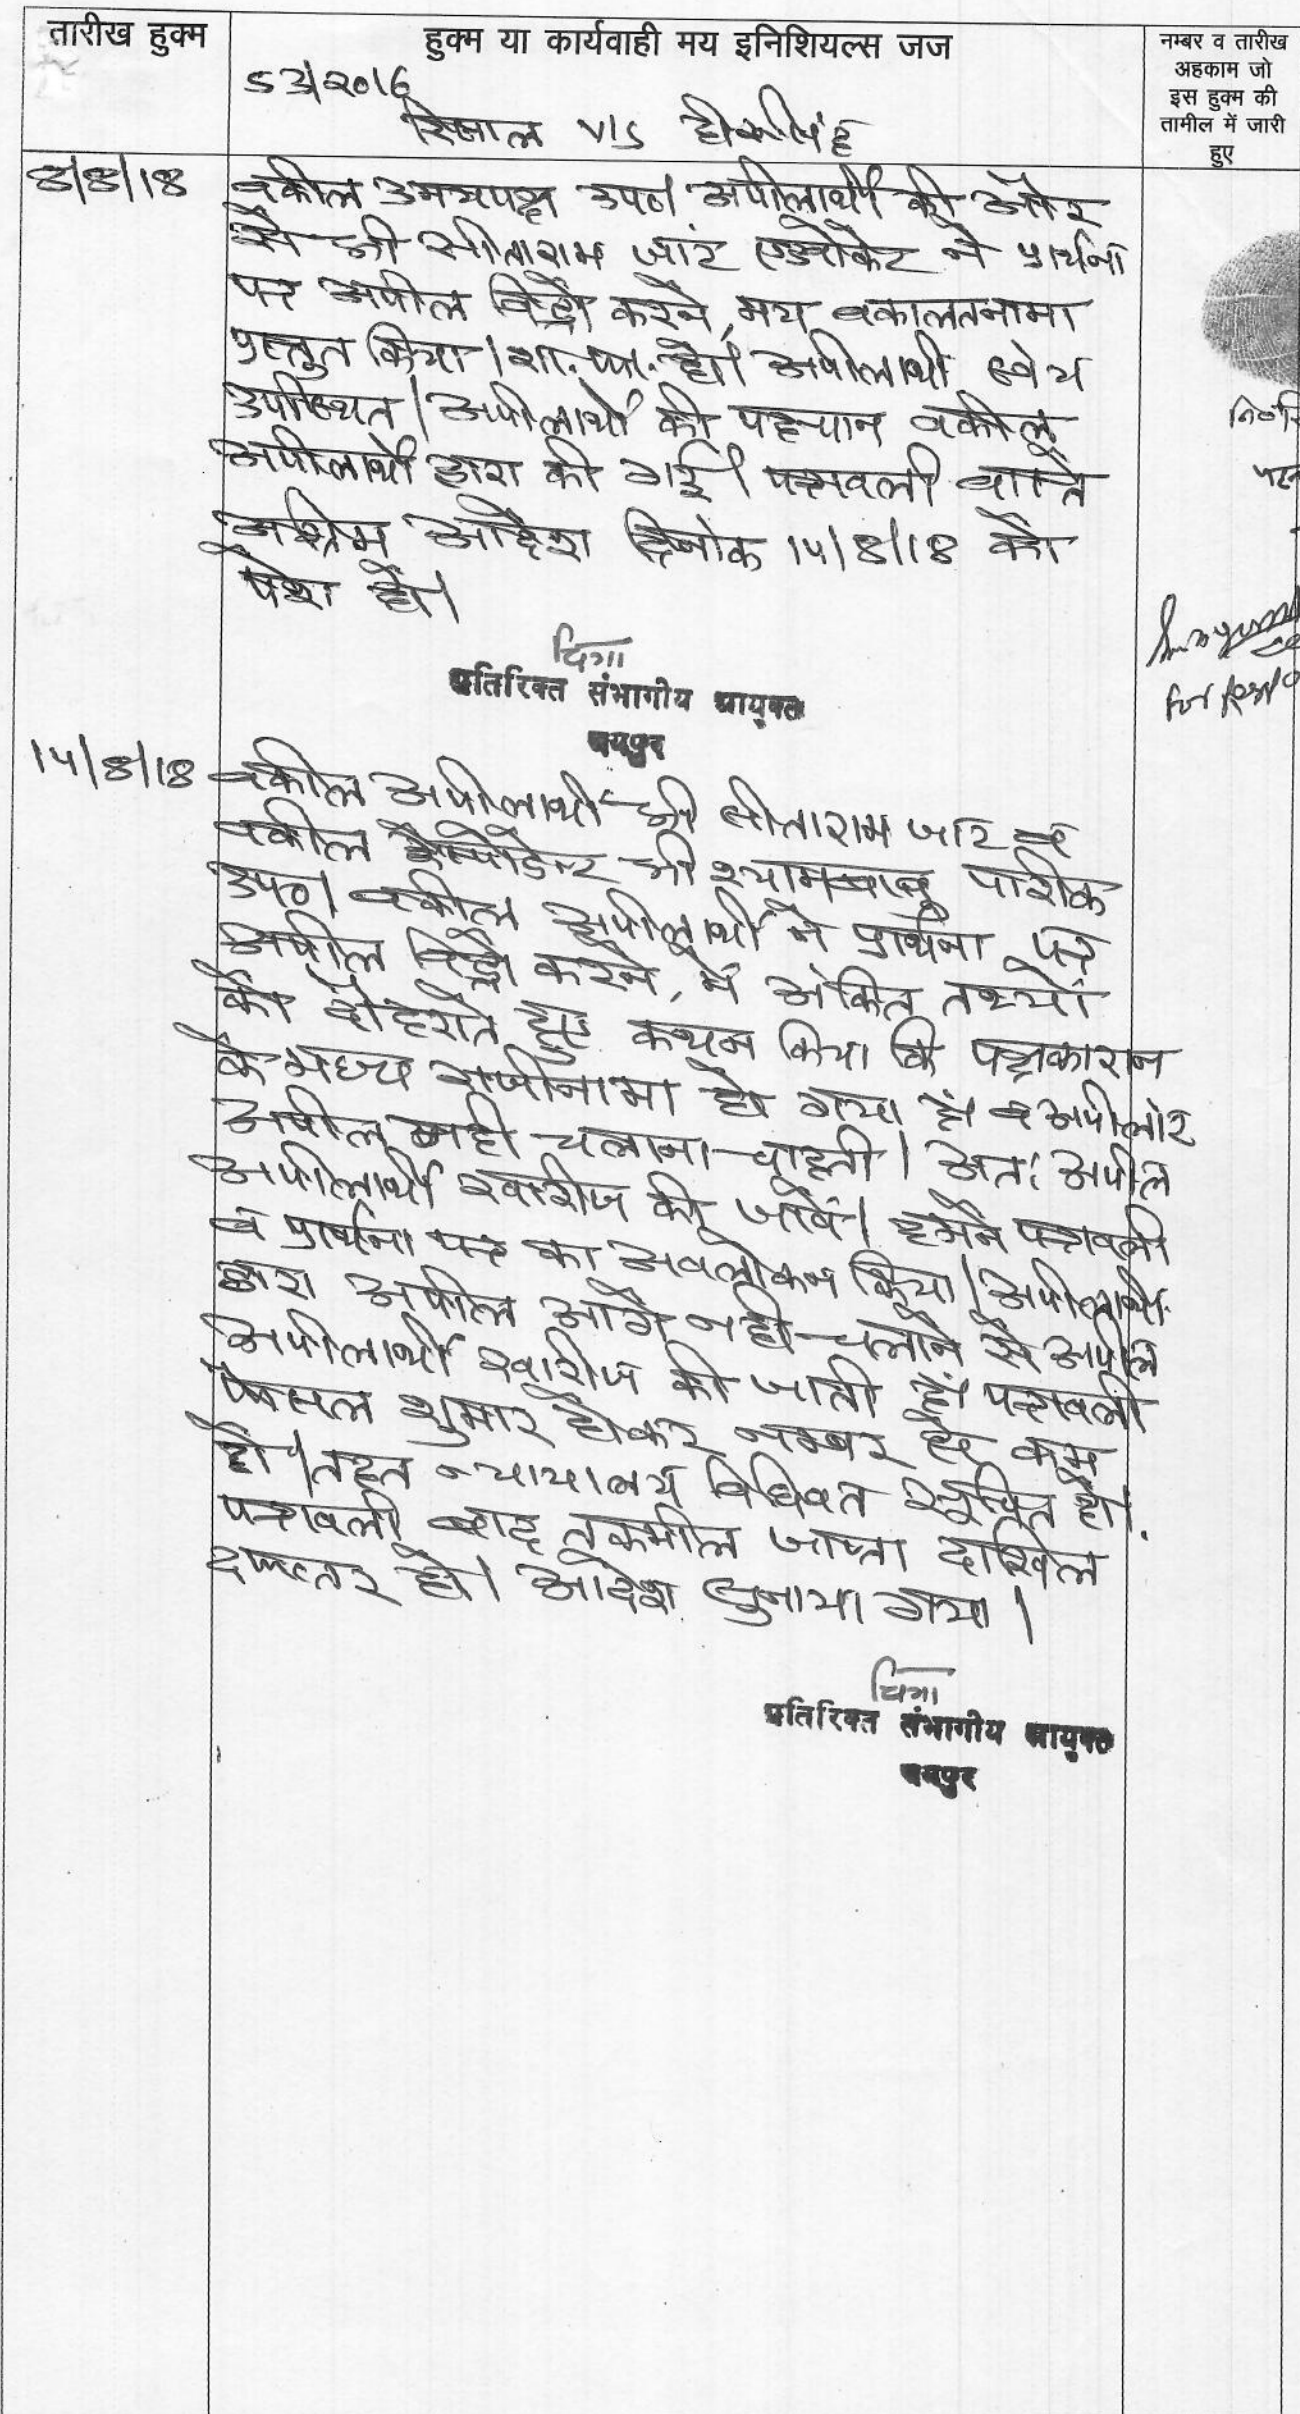 तारीख हुक्म
हुक्म या कार्यवाही मय इनिशियल्स जज
नम्बर व तारीख
अहकाम जो
इस हुक्म की
तामील में जारी
हुए
53/2016
रिसाल V/S
8/8/18
वकील उभयपक्ष उप०। अपीलार्थी की ओर
से श्री सीताराम जाट एडवोकेट ने प्रार्थना
पत्र अपील विड्रो करने, मय वकालतनामा
प्रस्तुत किया। शा. फा. हो। अपीलार्थी स्वंय
उपस्थित। अपीलार्थी की पहचान वकील
अपीलार्थी द्वारा की गई। पत्रावली वास्ते
अग्रिम आदेश दिनांक 14/8/18 को
पेश हो।
अतिरिक्त संभागीय आयुक्त
जयपुर
14/8/18
वकील अपीलार्थी श्री सीताराम जाट व
वकील रेस्पोडेन्ट श्री श्यामबाबू पारीक
उप०। वकील अपीलार्थी ने प्रार्थना पत्र
अपील विड्रो करने, में अंकित तथ्यों
को दोहराते हुए कथन किया कि पक्षकारान
के मध्य राजीनामा हो गया है। व अपीलांट
अपील नही चलाना चाहती। अतः अपील
अपीलार्थी खारीज की जावें। हमने पत्रावली
व प्रार्थना पत्र का अवलोकन किया। अपीलार्थी
द्वारा अपील आगे नही चलाने से अपील
अपीलार्थी खारीज की जाती है। पत्रावली
फैसल शुमार होकर नम्बर से कम
हो। तहत न्यायालय विधिवत सूचित हो।
पत्रावली बाद तकमील जाप्ता दाखिल
दफ्तर हो। आदेश सुनाया गया।
अतिरिक्त संभागीय आयुक्त
जयपुर